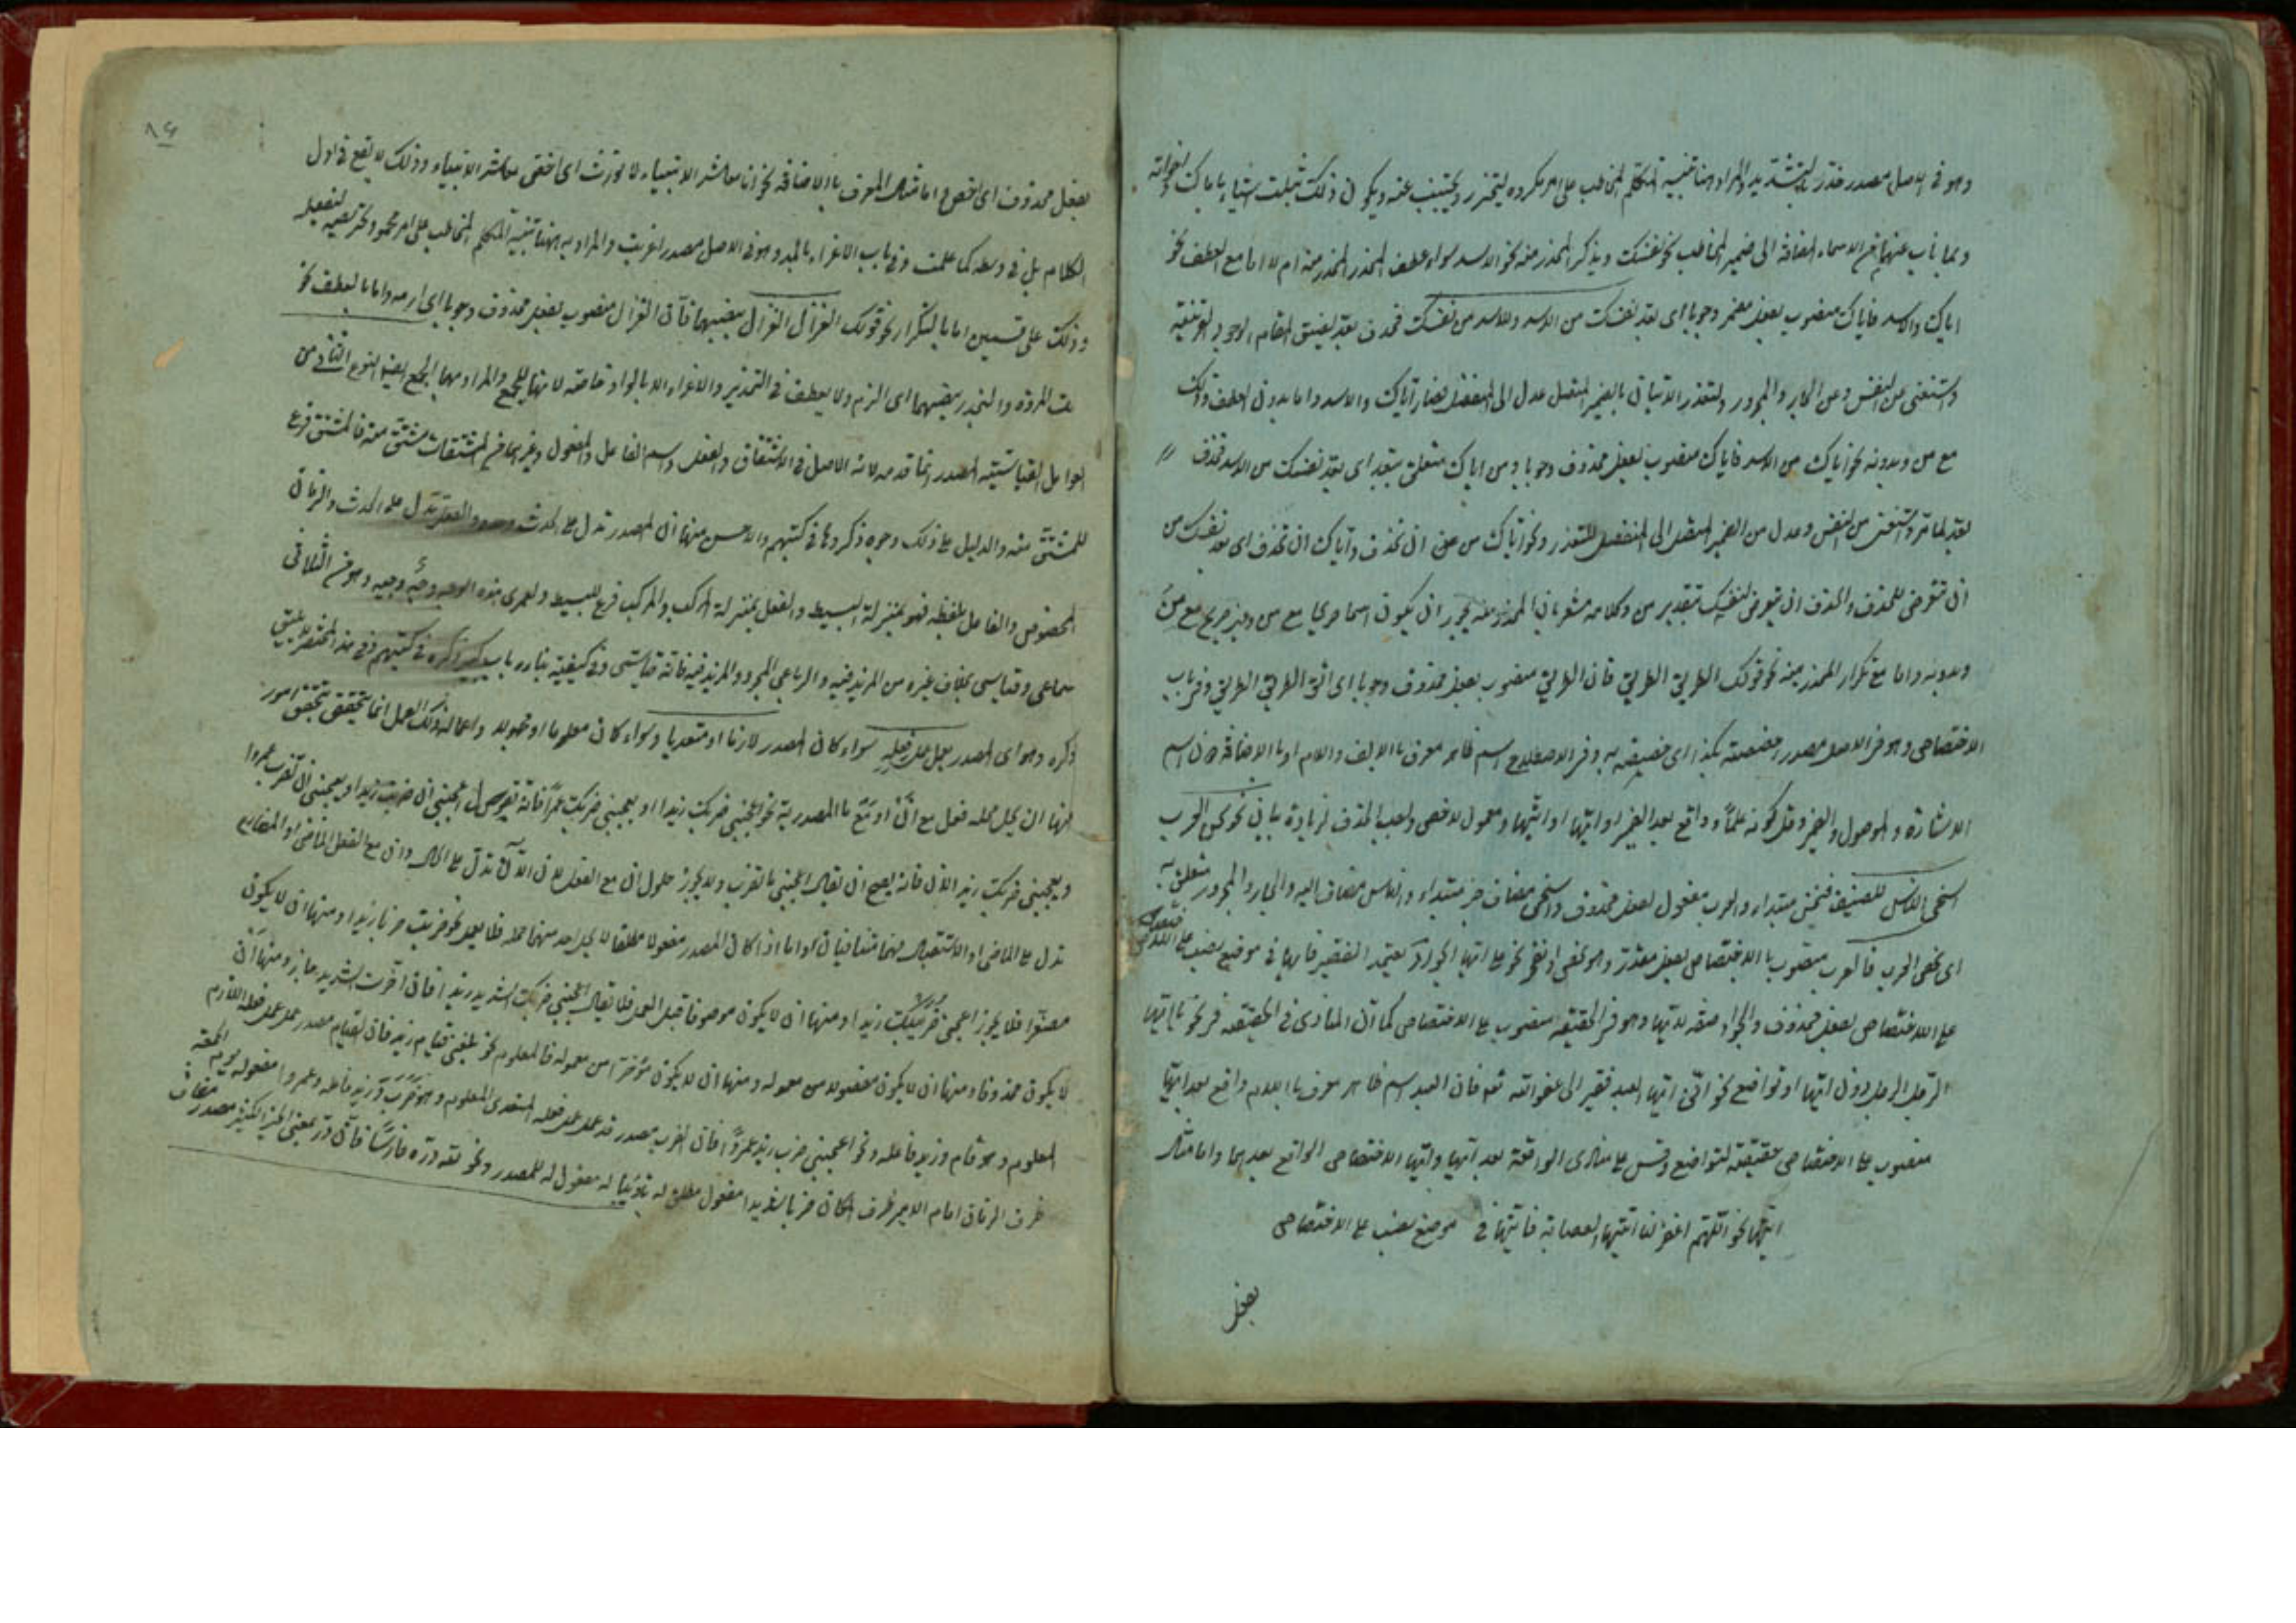 وهو فی الاصل مصدر حذر بالتشدید والمراد هنا تنبیه المتکلم المخاطب علی امر مکروه لیتحذر ویجتنب عنه ویکون ذلک بثلث اشیاء بایاک واخواته
وبما ناب عنهما من الاسماء المضافة الی ضمیر المخاطب نحو نفسک وبذکر المحذر منه نحو الاسد سواء عطف المحذر المحذر منه ام لا اما مع العطف نحو
ایاک والاسد فایاک منصوب بفعل مضمر وجوبا ای بعد نفسک من الاسد والاسد من نفسک فحذف بعد لضیق المقام
واستغنی عن النفس وعن الجار والمجرور ولتعذر الاتیان بالضمیر المتصل عدل الی المنفصل فصار ایاک والاسد واما بدون العطف وذلک
مع من وبدونه نحو ایاک من الاسد فایاک منصوب بفعل محذوف وجوبا ومن ایاک متعلق ببعد ای بعد نفسک من الاسد فحذف
بعد لما مر واستغنی من النفس وعدل من الضمیر المتصل الی المنفصل للتعذر ونحو ایاک من ان تحذف وایاک ان تحذف ای بعد نفسک من
ان تتعرض للحذف والحذف ان یتعرض لنفسک بتقدیر من وکلامه مشعر بان المحذر منه یجوز ان یکون اسما صریحا مع من وغیر صریح مع من
وبدونه واما مع تکرار المحذر منه نحو قولک الطریق الطریق فان الطریق منصوب بفعل محذوف وجوبا ای اتق الطریق الطریق وفی باب
الاختصاص وهو فی الاصل مصدر اختصصته بکذا ای خصصته به وفی الاصطلاح اسم ظاهر معرف بالالف واللام او بالاضافة دون اسم
الاشارة والموصول والضمیر وقل کونه علما وواقع بعد الضمیر او ایها او ایتها ومعمول لاخص واجب الحذف لزیادة بیان نحو نحن العرب
اسخی الناس للضیف فنحن مبتداء والعرب مفعول لفعل محذوف واسخی مضاف خبر مبتداء والناس مضاف الیه والجار والمجرور متعلق به
ای نخص العرب فالعرب منصوب بالاختصاص بفعل مقدر وهو نخص او نحو علی ایها الجواد یعتمد الفقیر فایها فی موضع نصب
علی الاختصاص بفعل محذوف والجواد صفة لایها وهو فی الحقیقة منصوب علی الاختصاص کما ان المنادی فی الحقیقة فی نحو یا ایها
الرجل الرجل دون ایها او تواضع نحو انی ایها العبد فقیر الی عفو الله فان العبد اسم ظاهر معرف باللام واقع بعد ایها
منصوب علی الاختصاص حقیقة لتواضع وقس علی منادی الواقعة بعد ایها وایتها الاختصاص الواقع بعدهما واما مثال
ایتها نحو اللهم اغفر لنا ایتها العصابة فایتها فی موضع نصب علی الاختصاص
بفعل
۸۶
بفعل محذوف ای اخص واما مثال المعرف بالاضافة نحو انا معاشر الانبیاء لا نورث ای اخص معاشر الانبیاء وذلک لا یقع فی اول
الکلام بل فی وسطه کما علمت وفی باب الاغراء بالمد وهو فی الاصل مصدر اغریت والمراد به ههنا تنبیه المتکلم المخاطب علی امر محمود لیفعله
وذلک علی قسمین اما بالتکرار نحو قولک الغزال الغزال بنصبهما فان الغزال منصوب بفعل محذوف وجوبا ای ارمه واما بالعطف نحو
المروة والنجدة بنصبهما ای الزم ولا یعطف فی التحذیر والاغراء الا بالواو خاصة لانها للجمع والمراد بهما الجمع النوع الثانی من
العوامل القیاسیة المصدر انما قدمه لانه الاصل فی الاشتقاق والفعل واسم الفاعل والمفعول وغیرهما من المشتقات مشتق منه فالمشتق فرع
للمشتق منه والدلیل علی ذلک وجوه ذکروها فی کتبهم والاحسن منها ان المصدر تدل علی الحدث والفعل تدل علی الحدث والزمان
المخصوص والفاعل بلفظه فهو بمنزلة البسیط والفعل بمنزلة المرکب والمرکب فرع للبسیط ولعمری هذه وجیه وهو من الثلاثی
سماعی وقیاسی بخلاف غیره من المزید فیه والرباعی المجرد والمزید فیه فانه قیاسی وفی کیفیة بناءه باب ذکره فی کتبهم وفی هذا المختصر لا یلیق
ذکره وهو ای المصدر یعمل عمل فعله سواء کان المصدر لازما او متعدیا وسواء کان معلوما او مجهولا واعماله ذلک العمل انما یتحقق بتحقق امور
منها ان یحل محله فعل مع ان او مع ما المصدریة نحو اعجبنی ضربک زیدا او یعجبنی ضربک عمرا فانه اعجبنی ان ضربت زیدا ویعجبنی ان تضرب عمروا
ویعجبنی ضربک زید الآن فانه یصح ان یقال اعجبنی ما تضرب ولا یجوز حلول ان مع الفعل لان الآن تدل علی الحال وان مع الفعل الماضی او المضارع
تدل علی الماضی او الاستقبال فهما متنافیان واما اذا کان المصدر مفعولا مطلقا لا یحل احد منهما محله فلا یعمل نحو ضربت ضربا زیدا ومنها ان لا یکون
مصغرا فلا یجوز اعجبنی ضریبک زیدا ومنها ان لا یکون موصوفا قبل العمل فلا یقال اعجبنی ضربک الشدید زیدا فان اخرت الشدید جاز ومنها ان
لا یکون محذوفا ومنها ان لا یکون مفصولا من معموله ومنها ان لا یکون مؤخرا من معموله فالمعلوم نحو بلغنی قیام زید فان القیام مصدر عمل عمل فعله اللازم
المعلوم وهو قام وزید فاعله ونحو اعجبنی ضرب زید عمروا فان الضرب مصدر قد عمل عمل فعله المتعدی المعلوم وهو ضرب وزید فاعله وعمروا مفعوله یوم الجمعة
ظرف الزمان امام الامیر ظرف المکان ضربا شدیدا مفعول مطلق له تادیبا له مفعول له للمصدر ونحو لله دره فارسا فان در بمعنی الخیر الکثیر مصدر مضاف